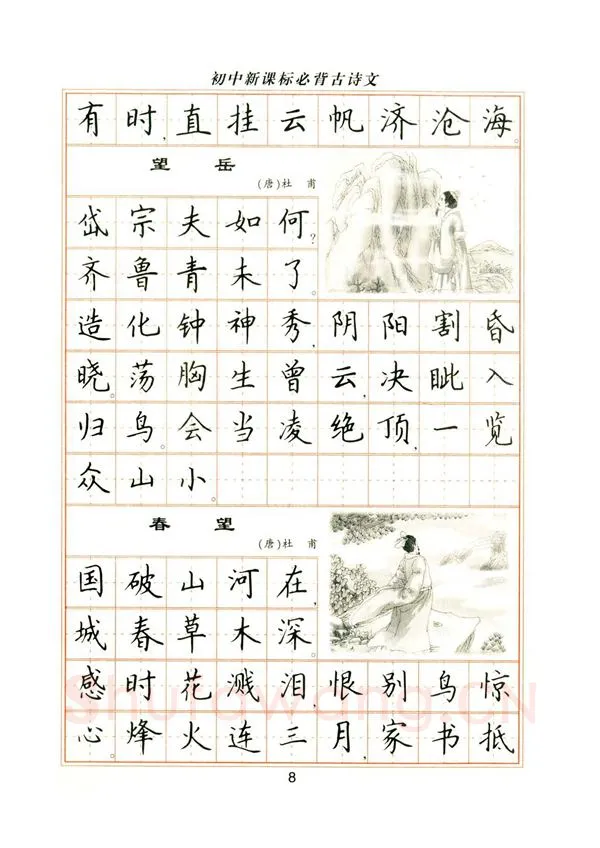 初中新课标必背古诗文
有时直挂云帆济沧海。
望 岳
(唐)杜 甫
岱宗夫如何?
齐鲁青未了。
造化钟神秀,阴阳割昏
晓。荡胸生曾云,决眦入
归鸟。会当凌绝顶,一览
众山小。
春 望
(唐)杜 甫
国破山河在,
城春草木深。
感时花溅泪,恨别鸟惊
心。烽火连三月,家书抵
8